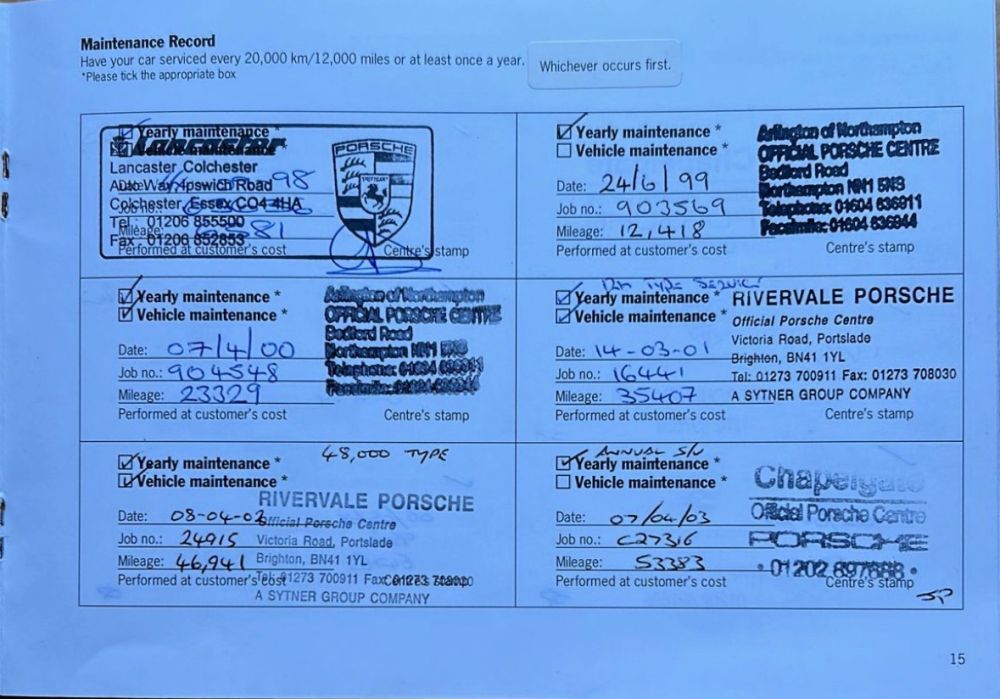 Maintenance Record
Have your car serviced every 20,000 km/12,000 miles or at least once a year. Whichever occurs first.
*Please tick the appropriate box
Yearly maintenance *
Lancaster Colchester
Auto Way, Ipswich Road
Colchester, Essex CO4 4HA
Tel: 01206 855500
Fax: 01206 852853
PORSCHE
Date: 98
Job no.:
Mileage:
Performed at customer's cost
Centre's stamp
Yearly maintenance *
Vehicle maintenance *
Date: 24/6/99
Job no.: 903569
Mileage: 12,418
Performed at customer's cost
Arlington of Northampton
OFFICIAL PORSCHE CENTRE
Bedford Road
Northampton NN1 5NS
Telephone: 01604 636911
Facsimile: 01604 636944
Centre's stamp
Yearly maintenance *
Vehicle maintenance *
Date: 07/4/00
Job no.: 904548
Mileage: 23329
Performed at customer's cost
Arlington of Northampton
OFFICIAL PORSCHE CENTRE
Bedford Road
Northampton NN1 5NS
Centre's stamp
12k TYPE SERVICE
Yearly maintenance *
Vehicle maintenance *
Date: 14-03-01
Job no.: 16441
Mileage: 35407
Performed at customer's cost
RIVERVALE PORSCHE
Official Porsche Centre
Victoria Road, Portslade
Brighton, BN41 1YL
Tel: 01273 700911 Fax: 01273 708030
A SYTNER GROUP COMPANY
Centre's stamp
48,000 TYPE
Yearly maintenance *
Vehicle maintenance *
Date: 08-04-02
Job no.: 24915
Mileage: 46,941
Performed at customer's cost
RIVERVALE PORSCHE
Official Porsche Centre
Victoria Road, Portslade
Brighton, BN41 1YL
Tel: 01273 700911 Fax: 01273 708030
A SYTNER GROUP COMPANY
ANNUAL S/V
Yearly maintenance *
Vehicle maintenance *
Date: 07/04/03
Job no.: C27316
Mileage: 53383
Performed at customer's cost
Chapelgate
Official Porsche Centre
PORSCHE
01202 897688
Centre's stamp
JP
15